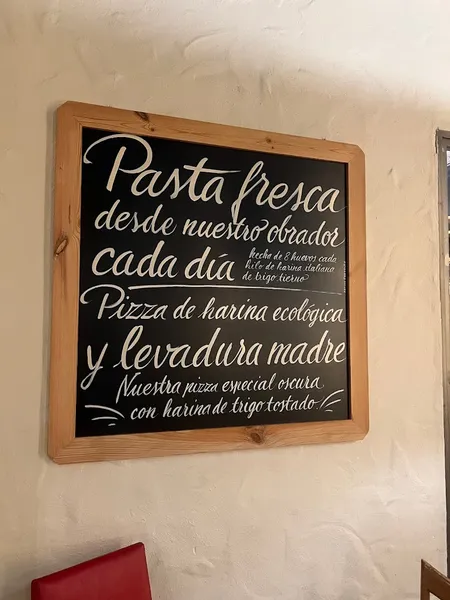 Pasta fresca
desde nuestro obrador
cada día
hecho de 8 huevos cada
kilo de harina italiana
de trigo tierno
Pizza de harina ecológica
y levadura madre
Nuestra pizza especial oscura
con harina de trigo tostado!